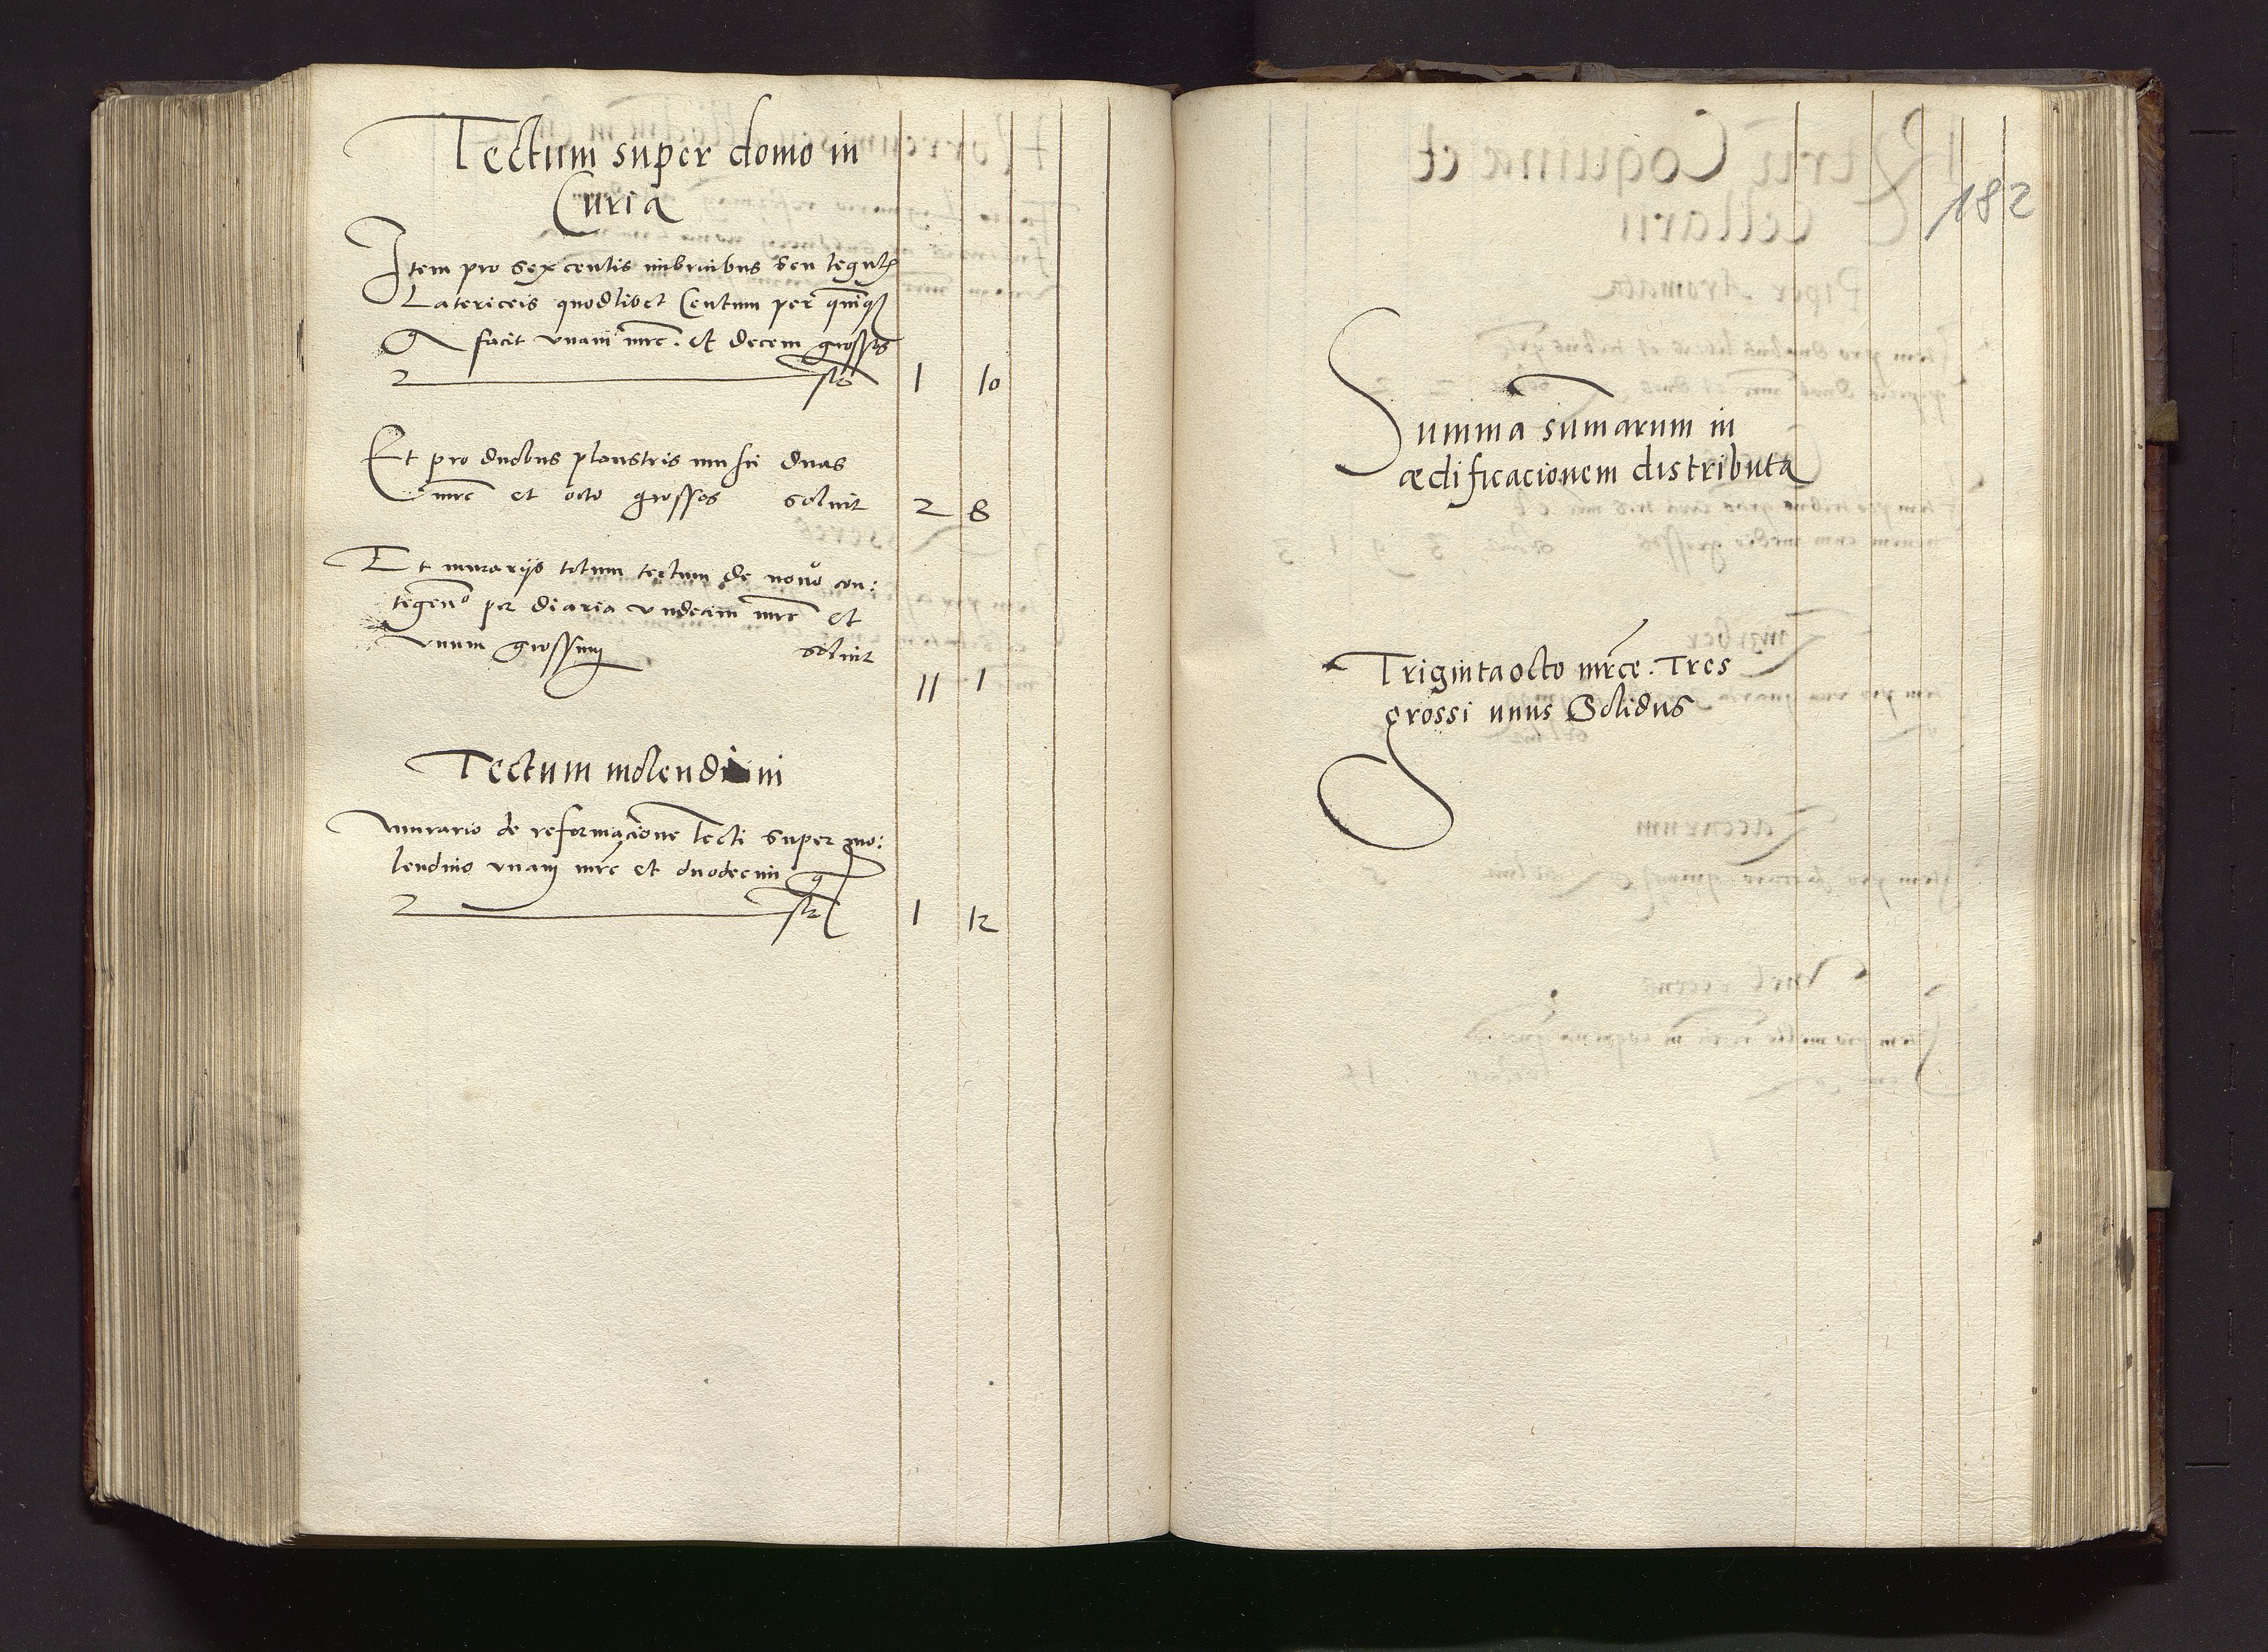 Tectum super domo in
Curia
Item pro sexcentis imbricibus seu tegul
Latericeis quodlibet Centum per quinq
g facit vnam mrc. et decem grossos
1 10
Et pro duobus plaustris duas
mrc et octo grossos soluit 2 8
Et murarijs totum tectum de nouo con:
tegen per diaria vndecim mrc et
vnum grossum soluit
11 1
Tectum molendini
Murario de reformacione tecti super mo:
lendino vnam mrc et duodecim g
1 12
182
Summa summarum in
ædificacionem distributa
Triginta octo mrce. Tres
grossi unus Solidus